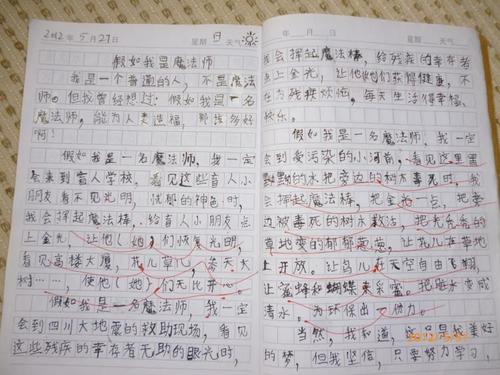 2012年5月27日 星期日 天气
假如我是魔法师
我是一个普通的人，不是魔法
师。但我曾经想过：假如我是一名
魔法师，能为人类造福，那该多好
啊！
假如我是一名魔法师，我一定
会来到盲人学校，看见这些盲人小
朋友看不见光明，忧郁的神色时，
我会挥起魔法棒，给盲人小朋友点
上金光，让他（她）们恢复光明，
看见高楼大厦，花儿草儿，参天大
树……，使他（她）们无比开心。
假如我是一名魔法师，我一定
会到四川大地震的救助现场，看见
这些残疾的幸存者无助的眼光时，
年 月 日 星期 天气
我会挥起魔法棒，给残疾的幸存者
点上金光，让他她们获得健康，不
在为残疾烦恼，每天生活得幸福、
快乐。
假如我是一名魔法师，我一定
会到受污染的小河前，看见这里黑
黝黝的水把旁边的树木毒死时，我
会挥起魔法棒，把金光一点，把旁
边被毒死的树木救活，把光秃秃的
草地变的郁郁葱葱，让花儿在草地
上开放。让鸟儿在天空自由飞翔，
让蜜蜂和蝴蝶来采蜜。把脏水变成
清水。为环保出一份力。
当然，我知道，这只是我美好
的梦，但我坚信，只要努力学习，